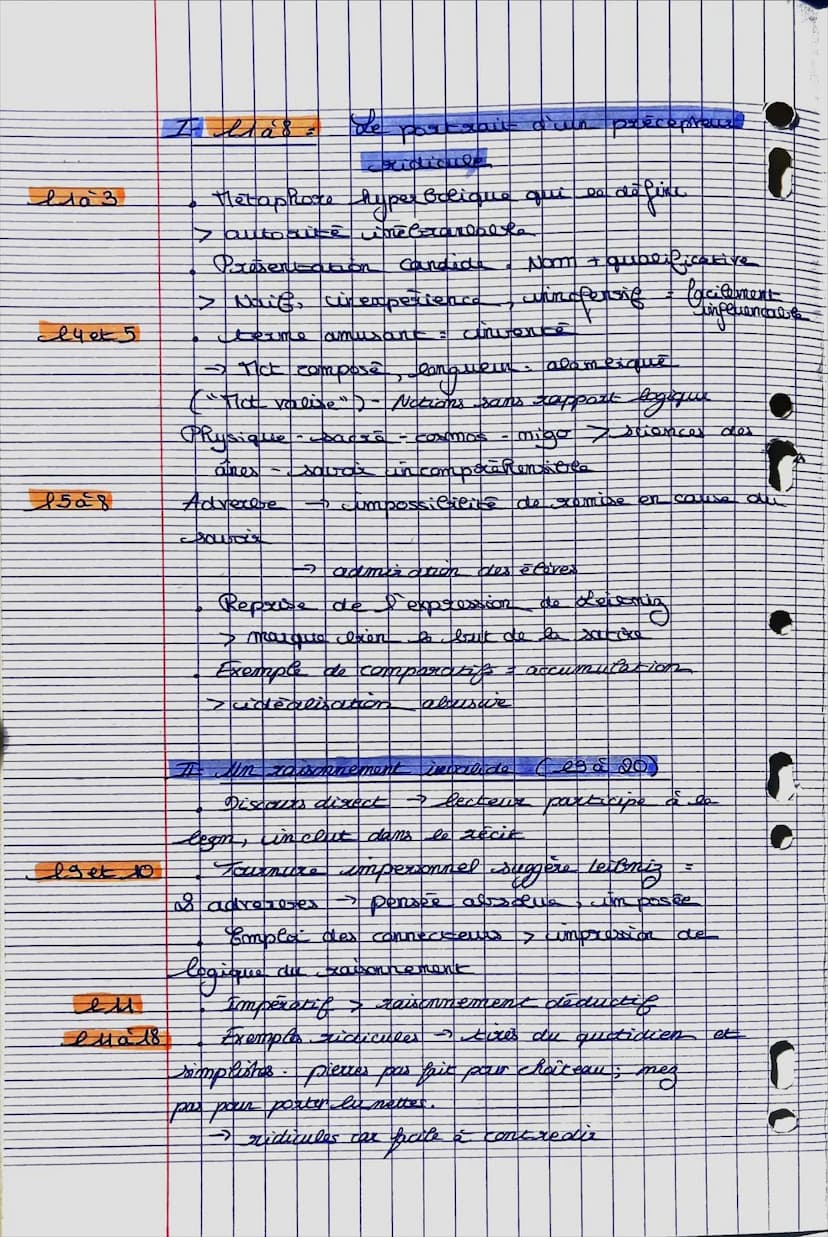 I- l1 à 8 = Le portrait d'un précepteur
ridicule
l1 à 3 • Métaphore hyperbolique qui le défini
> autorité inébranlable
• Présentation Candide. Nom + qualificative
> Naif, inexpérience, innofensif = facilement
influençable
l4 et 5 • terme amusant = inventé
→ Mot composé, longueur. alambiqué
("Mot valise") - Notions sans rapport logique
Physique - sacré - cosmos - nigo > sciences des
ânes - savoir incompréhensible
l5 à 8 Adverbe → impossibilité de remise en cause du
savoir
→ admiration des élèves
• Reprise de l'expression de Leibniz
> marque bien le but de la satire
• Exemple de comparatifs = accumulation
> idéalisation abusive
II- Un raisonnement invalide (l9 à 20)
• Discours direct → lecteur participe à la
leçon, inclut dans le récit
l9 et 10 • Tournure impersonnel suggère leibniz =
2 adverbes → pensée absolue, imposée
• Emploi des connecteurs > impression de
logique du raisonnement
l11 • Impératif > raisonnement déductif
l11 à 18 • Exemples ridicules → tirés du quotidien et
simplistes. pierres pas fait pour château ; nez
pas pour porter lunettes.
→ ridicules car facile à contredir